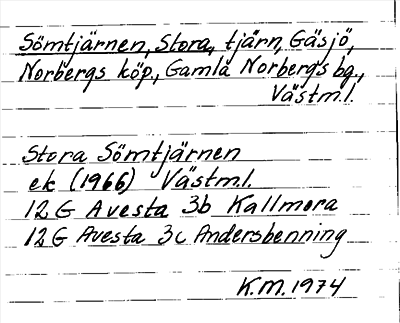 Sömtjärnen, Stora, tjärn, Gäsjö,
Norbergs köp., Gamla Norbergs bg.,
Västm.l.
Stora Sömtjärnen
ek (1966) Västm.l.
12 G Avesta 3b Kallmora
12 G Avesta 3c Andersbenning
K.M. 1974